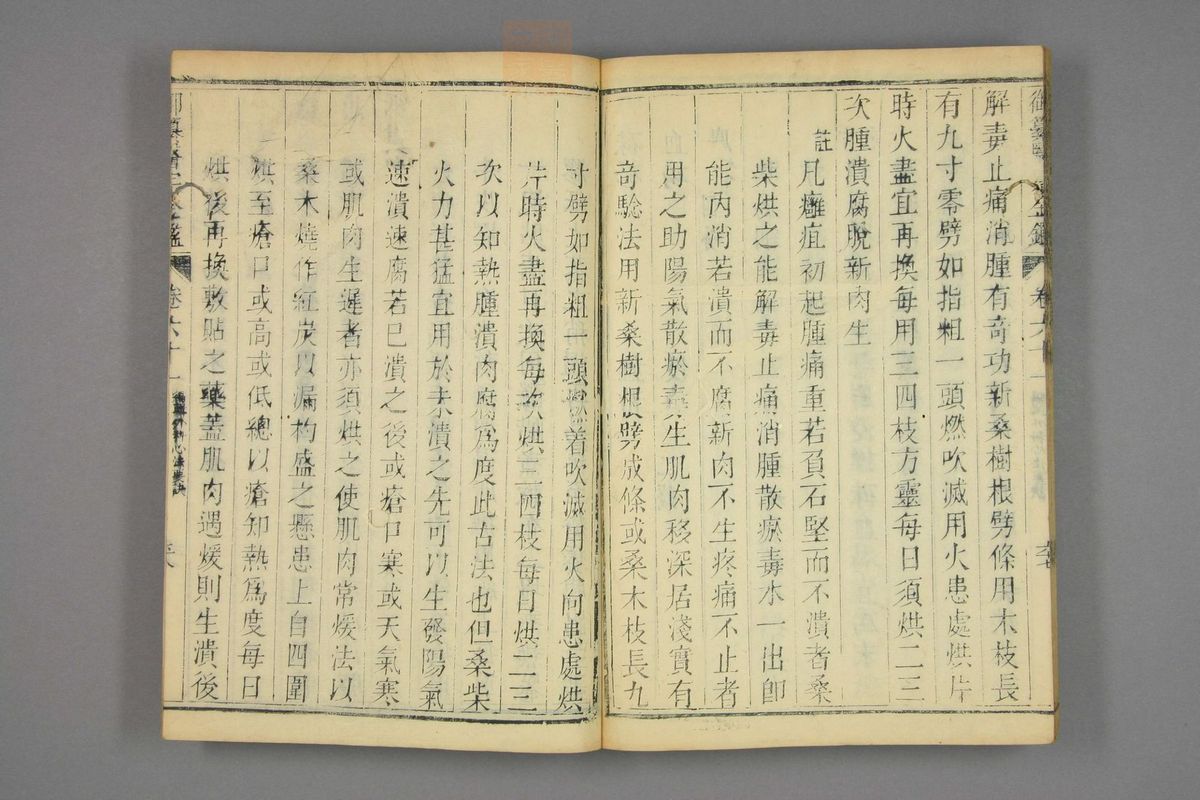 解毒止痛消腫有奇功新桑樹根劈條用木枝長
有九寸零劈如指粗一頭燃吹滅用火患處烘片
時火盡宜再換每用三四枝方靈每日須烘二三
次腫潰腐脫新肉生
註凡癰疽初起腫痛重若負石堅而不潰者桑
柴烘之能解毒止痛消腫散瘀毒水一出卽
能內消若潰而不腐新肉不生疼痛不止者
用之助陽氣散瘀毒生肌肉移深居淺實有
奇驗法用新桑樹根劈成條或桑木枝長九
寸劈如指粗一頭燃着吹滅用火向患處烘
片時火盡再換每次烘三四枝每日烘二三
次以知熱腫潰肉腐爲度此古法也但桑柴
火力甚猛宜用於未潰之先可以生發陽氣
速潰速腐若已潰之後或瘡口寒或天氣寒
或肌肉生遲者亦須烘之使肌肉常煖法以
桑木燒作紅炭以漏杓盛之懸患上自四圍
烘至瘡口或高或低總以瘡知熱爲度每日
烘後再換敷貼之藥蓋肌肉遇煖則生潰後
卷六十一